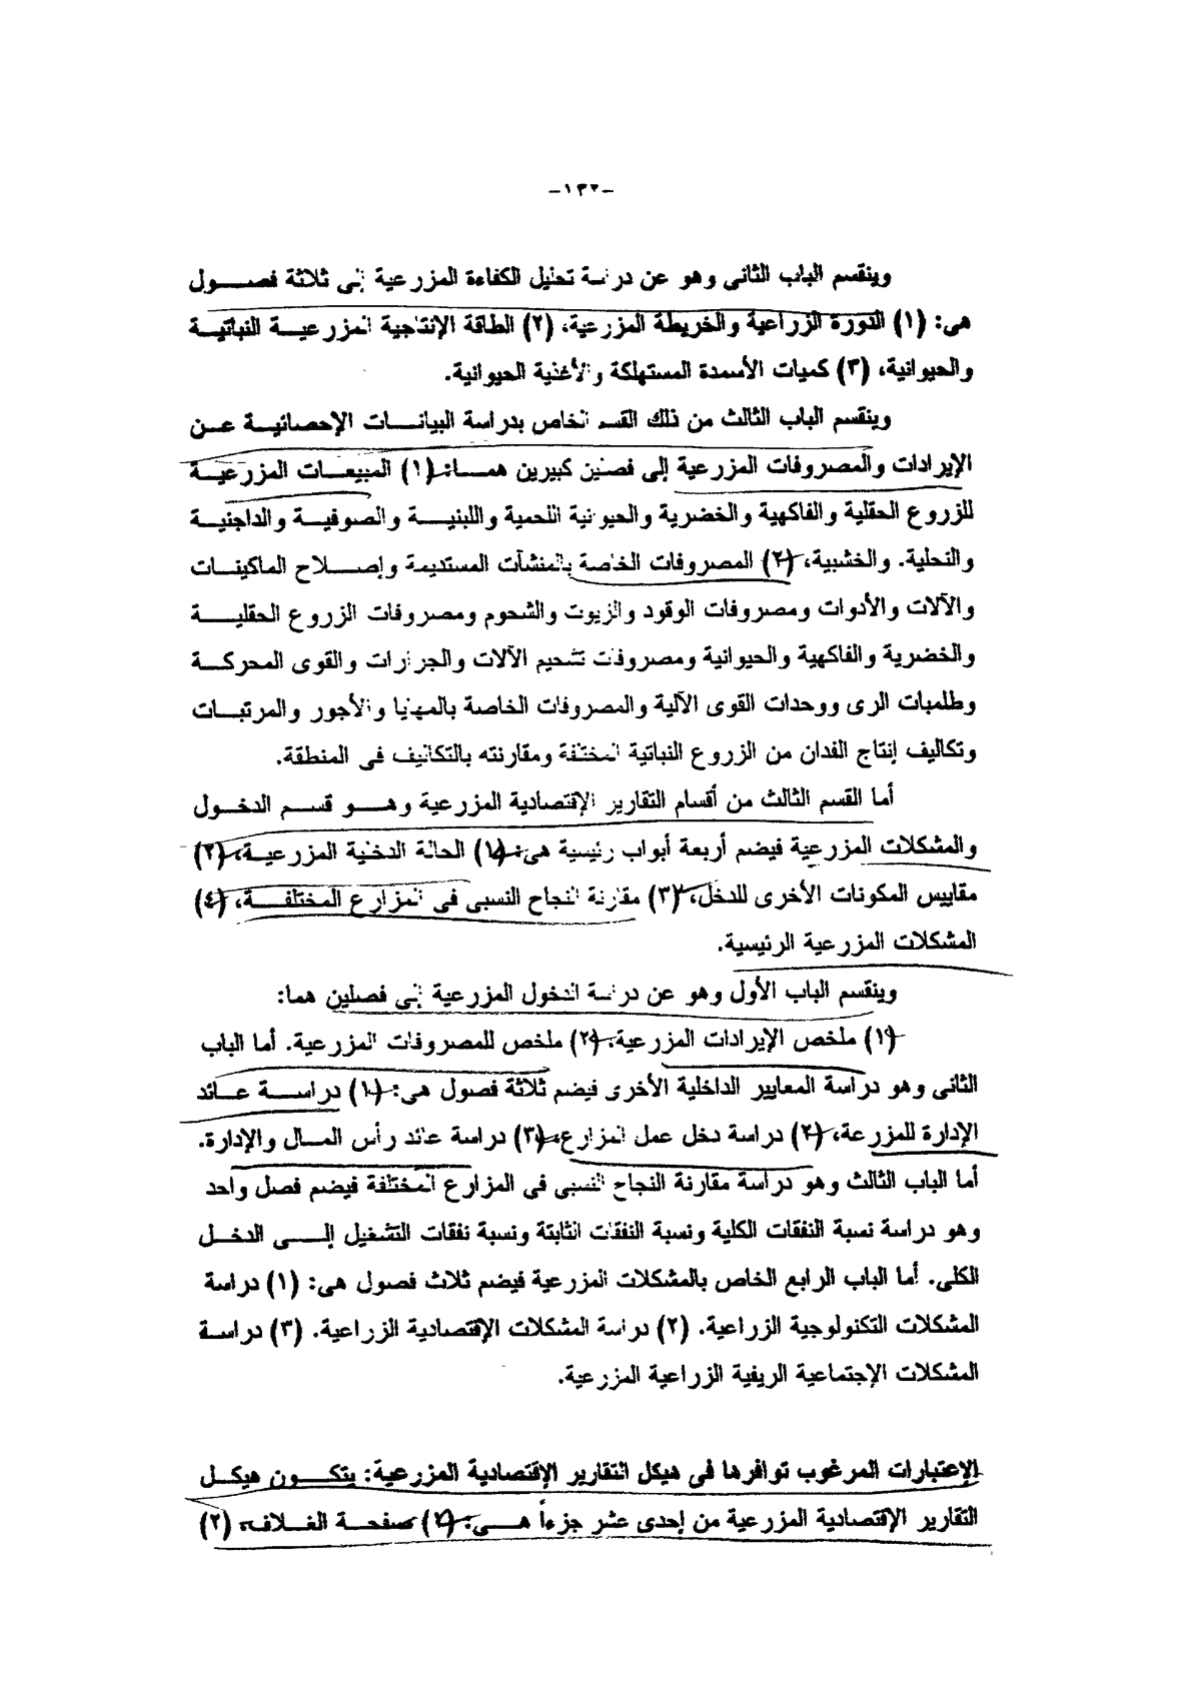 -١٣٢-
وينقسم الباب الثانى وهو عن دراسة تحليل الكفاءة المزرعية إلى ثلاثة فصول
هى: (١) الدورة الزراعية والخريطة المزرعية، (٢) الطاقة الإنتاجية المزرعية النباتية
والحيوانية، (٣) كميات الأسمدة المستهلكة والأغذية الحيوانية.
وينقسم الباب الثالث من ذلك القسم الخاص بدراسة البيانات الإحصائية عن
الإيرادات والمصروفات المزرعية إلى فصلين كبيرين هما: (١) المبيعات المزرعية
للزروع الحقلية والفاكهية والخضرية والحيوانية اللحمية واللبنية والصوفية والداجنية
والنحلية. والخشبية، (٢) المصروفات الخاصة بالمنشآت المستديمة وإصلاح الماكينات
والآلات والأدوات ومصروفات الوقود والزيوت والشحوم ومصروفات الزروع الحقلية
والخضرية والفاكهية والحيوانية ومصروفات تشحيم الآلات والجرارات والقوى المحركة
وطلمبات الرى ووحدات القوى الآلية والمصروفات الخاصة بالمهايا والأجور والمرتبات
وتكاليف إنتاج الفدان من الزروع النباتية المختلفة ومقارنته بالتكاليف فى المنطقة.
أما القسم الثالث من أقسام التقارير الإقتصادية المزرعية وهو قسم الدخول
والمشكلات المزرعية فيضم أربعة أبواب رئيسية هى: (١) الحالة الدخلية المزرعية، (٢)
مقاييس المكونات الأخرى للدخل، (٣) مقارنة النجاح النسبى فى المزارع المختلفة، (٤)
المشكلات المزرعية الرئيسية.
وينقسم الباب الأول وهو عن دراسة الدخول المزرعية إلى فصلين هما:
(١) ملخص الإيرادات المزرعية، (٢) ملخص للمصروفات المزرعية. أما الباب
الثانى وهو دراسة المعايير الداخلية الأخرى فيضم ثلاثة فصول هى: (١) دراسة عائد
الإدارة للمزرعة، (٢) دراسة دخل عمل المزارع، (٣) دراسة عائد رأس المال والإدارة.
أما الباب الثالث وهو دراسة مقارنة النجاح النسبى فى المزارع المختلفة فيضم فصل واحد
وهو دراسة نسبة النفقات الكلية ونسبة النفقات الثابتة ونسبة نفقات التشغيل إلى الدخل
الكلى. أما الباب الرابع الخاص بالمشكلات المزرعية فيضم ثلاث فصول هى: (١) دراسة
المشكلات التكنولوجية الزراعية. (٢) دراسة المشكلات الإقتصادية الزراعية. (٣) دراسة
المشكلات الإجتماعية الريفية الزراعية المزرعية.
الإعتبارات المرغوب توافرها فى هيكل التقارير الإقتصادية المزرعية: يتكون هيكل
التقارير الإقتصادية المزرعية من إحدى عشر جزءاً هى: (١) صفحة الغلاف، (٢)